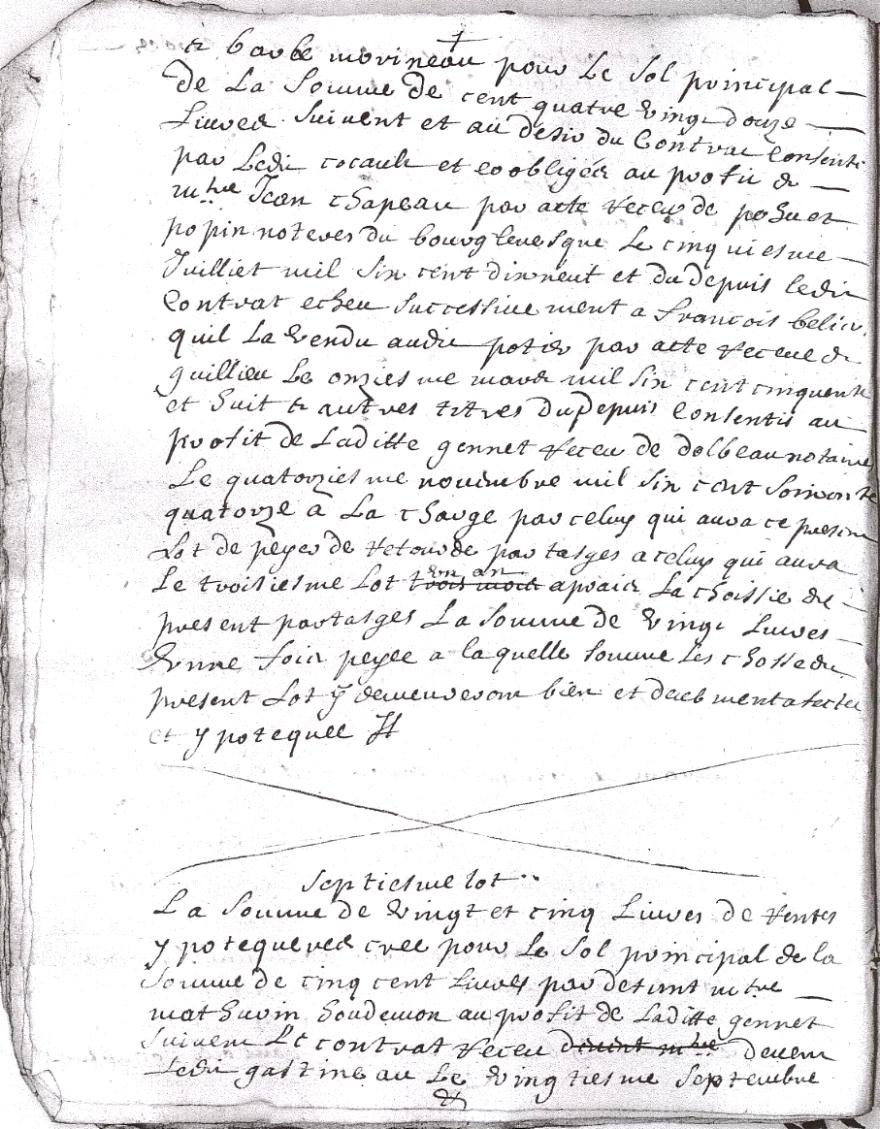 & barbe morineau pour Le Sol principal
de La Somme de cent quatre vingt douze
Livres Suivent et au desir du Contrat Consenti
par Ledit cocault et coobligés au profit de
mtre Jean Chapeau par acte receu de et
popin noteres du bourg levesque Le cinquiesme
Juilliet mil Six cent dixneuf et du depuis ledit
Contrat echeu Successivement a francois
quil La vendu audit potier par acte receue de
guillieu Le onziesme mars mil Six cent cinquente
et huit & autres titres dudepuis Consentis au
profit de Laditte gennet receu de dolbeau notaire
Le quatorziesme novembre mil Six cent Soixante
quatorze a La charge par celuy qui aura ce present
Lot de peyer de retour de partasges a celuy qui aura
Le troisiesme Lot trois mois un an aprais La choissie de
present partasges La Somme de vingt Livres
vnne fois peyee a laquelle somme Les chosse du
present Lot y demeureront bien et deub ment afectee
et ypotequee #
Septiesme lot
La Somme de vingt et cinq Livres de rentes
ypotequeres cree pour Le Sol principal de la
Somme de cinq cent Livres par defunt mtre
mathurin houdemon au profit de Laditte gennet
Suivent Le contrat receu devent mtre devent
Ledit gastineau Le vingtiesme Septembre
&